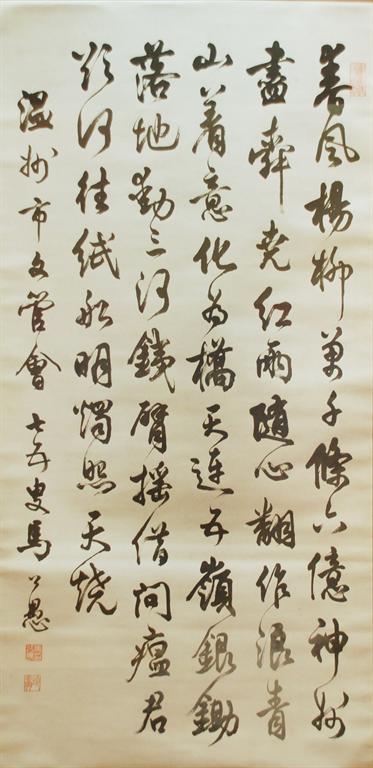 春風楊柳萬千條六億神州
盡舜堯紅雨隨心翻作浪青
山着意化為橋天連五嶺銀鋤
落地動三河鐵臂搖借問瘟君
欲何往紙船明燭照天燒
温州市文管會 七五叟馬公愚